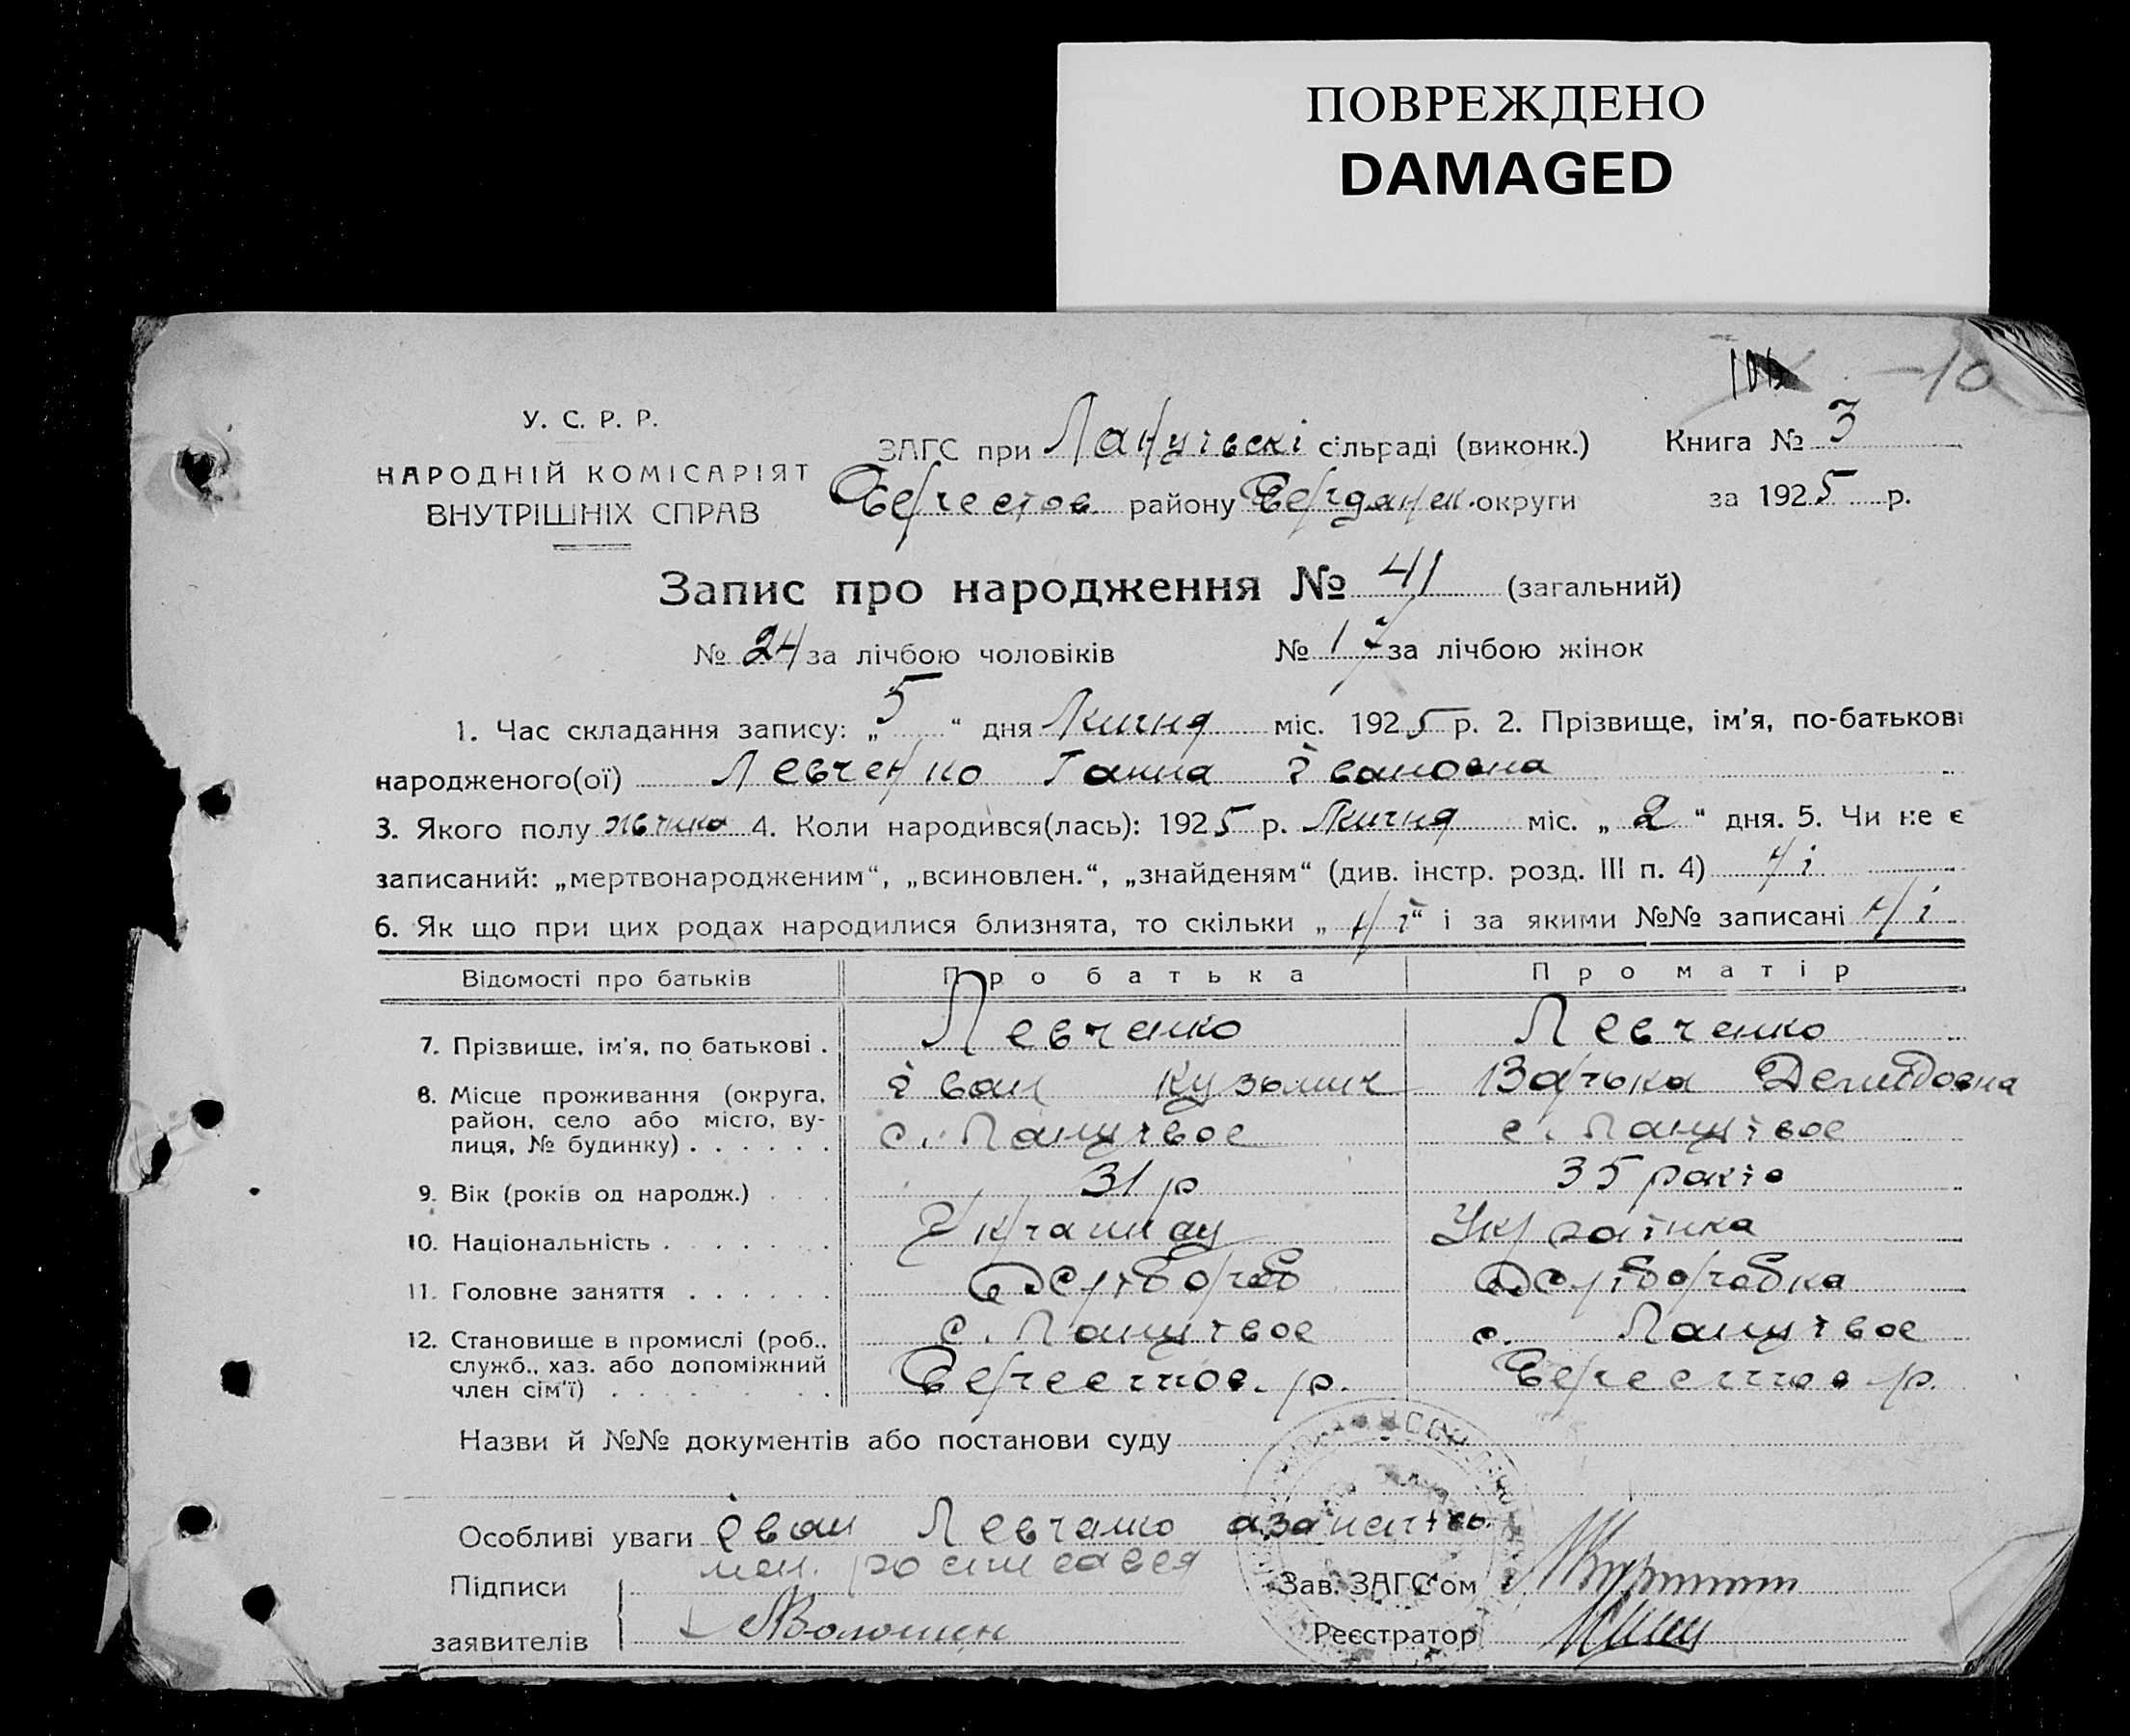 ПОВРЕЖДЕНО
DAMAGED
-10
У. С. Р. Р.
НАРОДНІЙ КОМІСАРІЯТ
ВНУТРІШНІХ СПРАВ
ЗАГС при сільраді (виконк.)
району округи
Книга № 3
за 1925 р.
Запис про народження № 41 (загальний)
№ 24 за лічбою чоловіків № 17 за лічбою жінок
1. Час складання запису: „5“ дня Липня міс. 1925 р. 2. Прізвище, ім'я, по-батькові
народженого(ої) Левченко Ганна Івановна
3. Якого полу жінка 4. Коли народився(лась): 1925 р. Липня міс. „2“ дня. 5. Чи не є
записаний: „мертвонародженим“, „всиновлен.“, „знайденям“ (див. інстр. розд. III п. 4) ні
6. Як що при цих родах народилися близнята, то скільки „ні“ і за якими №№ записані ні
Відомості про батьків Про батька Про матір
7. Прізвище, ім'я, по батькові . Левченко Левченко
Іван Кузьмич Варька Демидовна
8. Місце проживання (округа,
район, село або місто, ву-
лиця, № будинку) . . . . . . с. с.
9. Вік (років од народж.) . . . 31 р 35 років
10. Національність . . . . . . . Українец Українка
11. Головне заняття . . . . . . Хлібороб Хліборобка
12. Становище в промислі (роб.,
служб., хаз. або допоміжний
член сім'ї) . . . . . . . . с. с.
р. р.
Назви й №№ документів або постанови суду
Особливі уваги Іван Левченко
Підписи
заявителів Волошин
Зав. ЗАГС'ом
Реєстратор